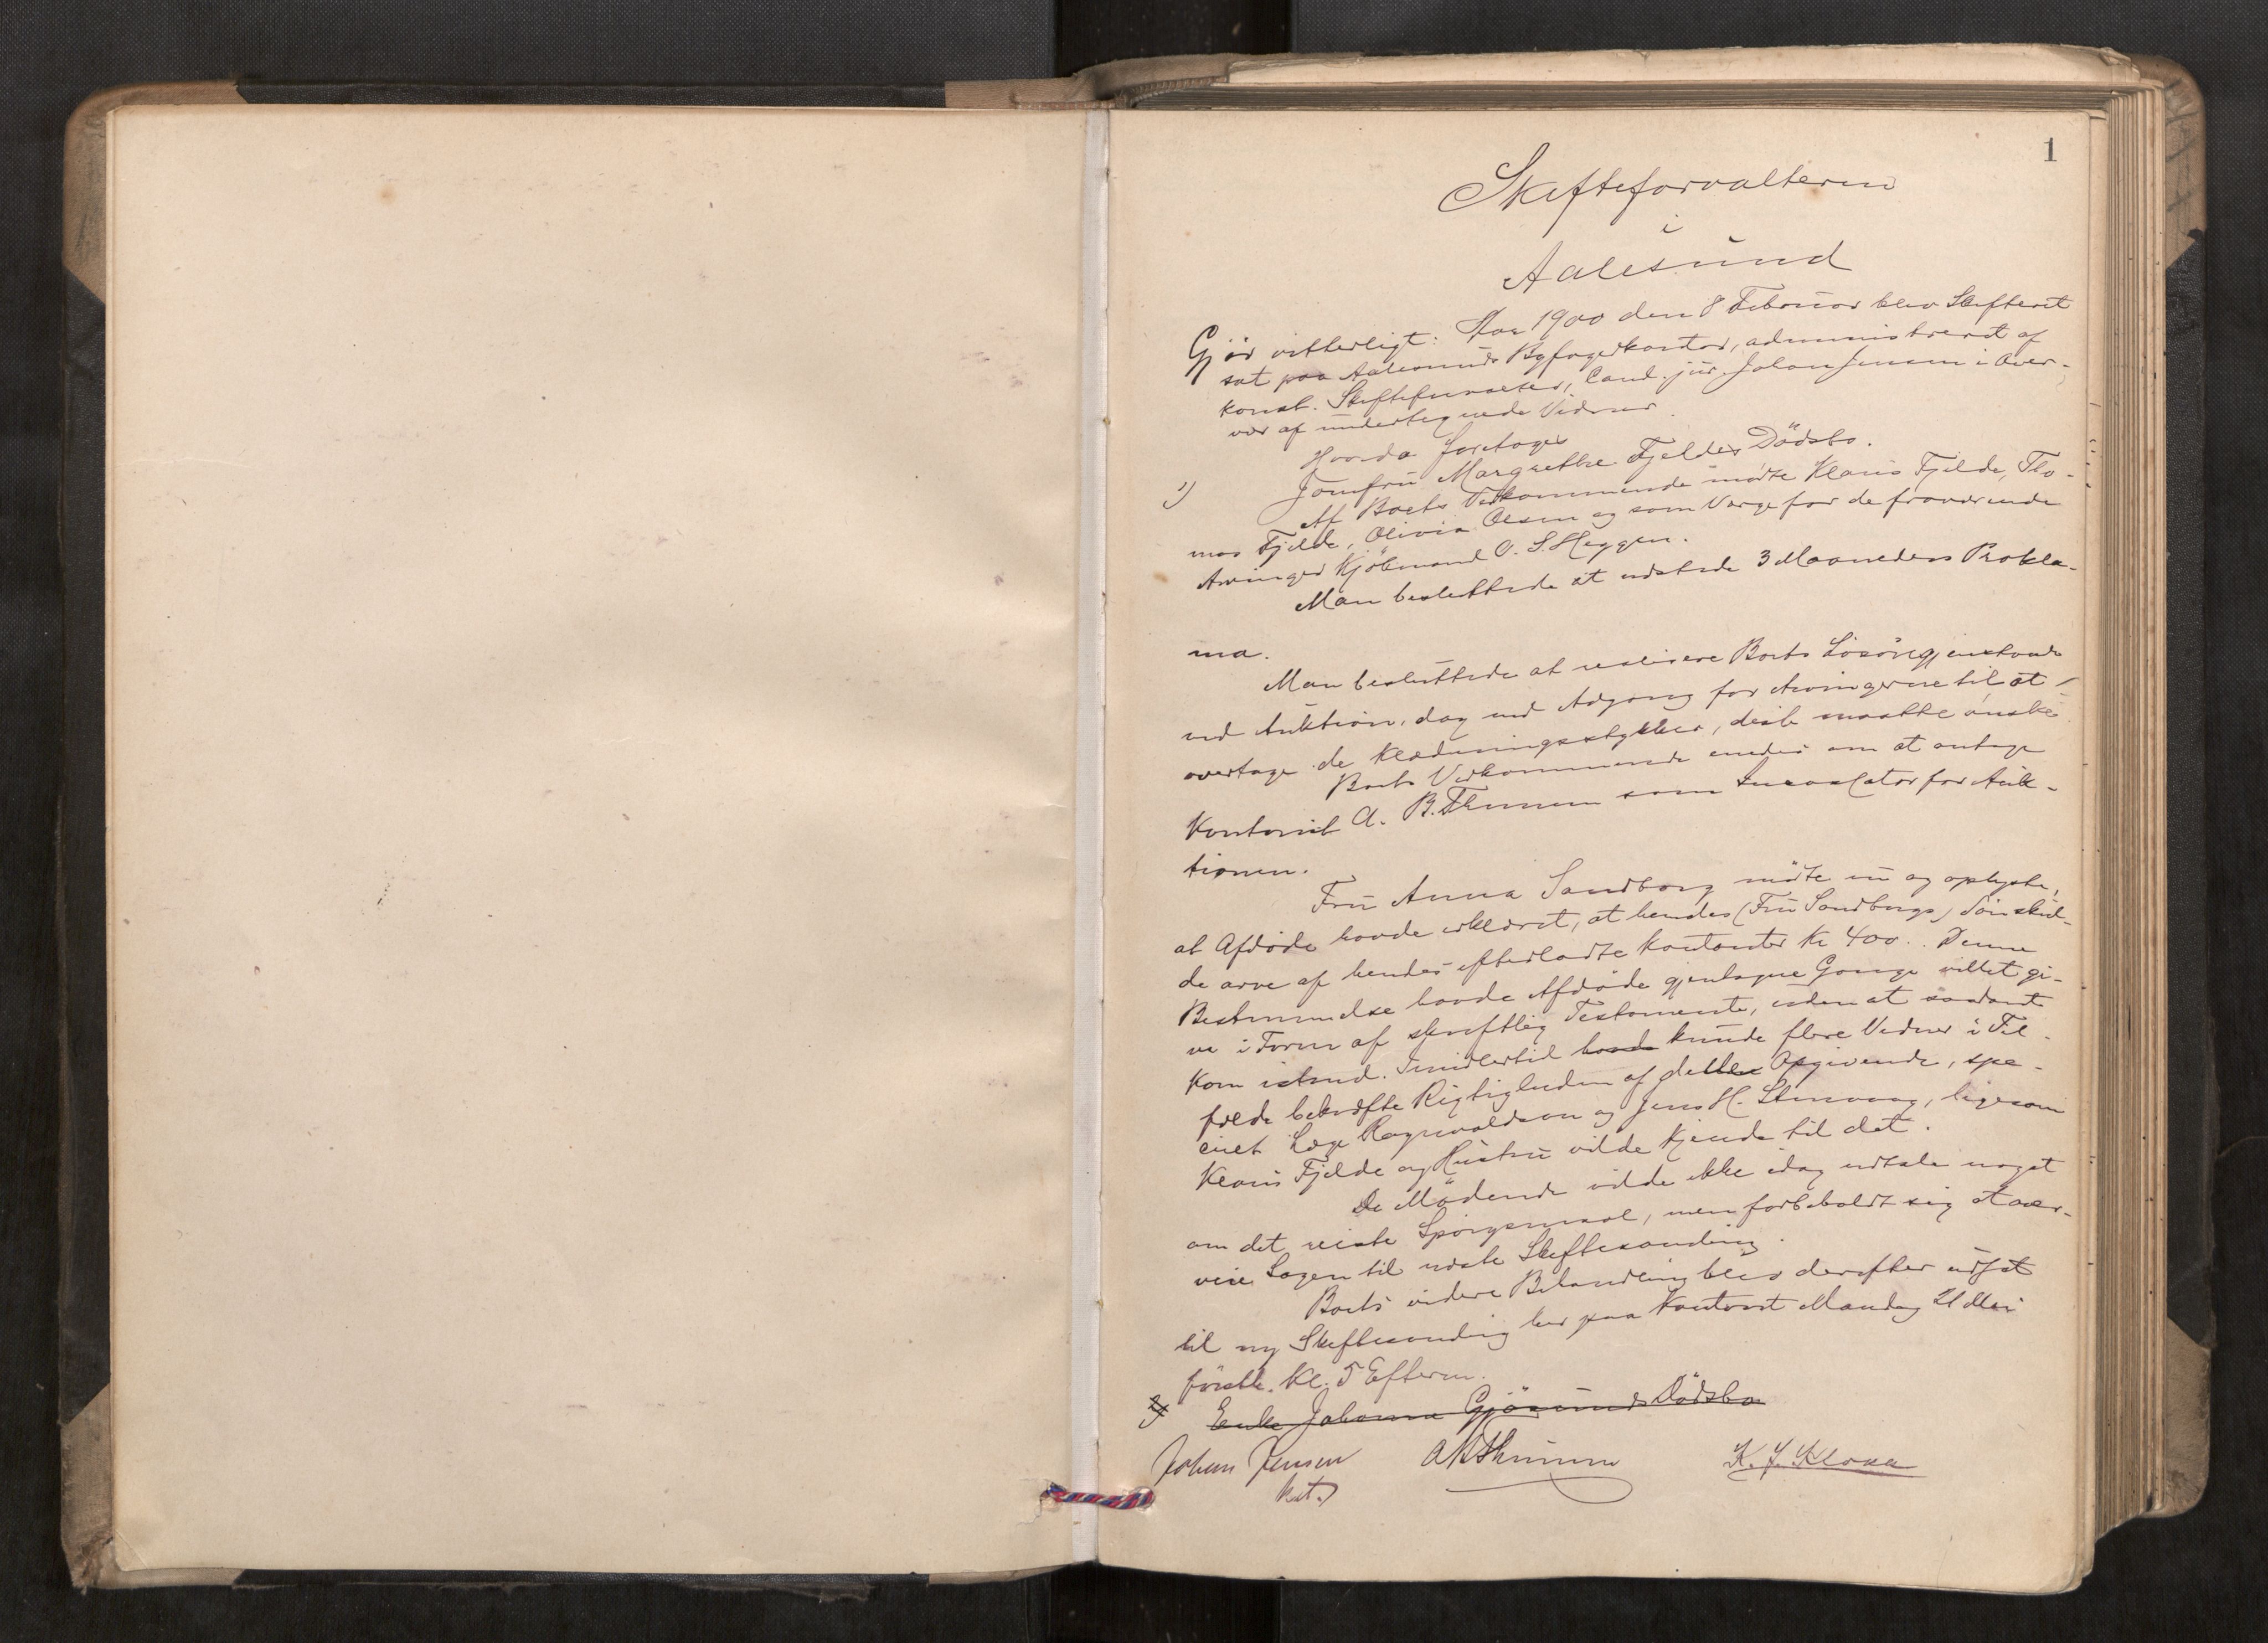 1
Skifteforvalteren
i
Aalesund
Gjör vitterligt: Aar 1900 den 8 Februar blev Skifteret
sat paa Aalesunds Byfogedkontor, administreret af
konst. Skifteforvalter, Cand. jur. Johan Jensen i Over-
vær af undertegnede Vidner.
Hvorda foretoges
1) Jomfru Margrethe Fjeldes Dödsbo.
Af Boets Vedkommende mödte Klaus Fjelde, Tho-
mas Fjelde, Olivia Olsen og som Værge for de fraværende
Arvinger Kjöbmand O. S. Heggen.
Man besluttede at udstede 3 Maaneders Prokla-
ma.
Man besluttede at realisere Boets Lösöregjenstande
ved Auktion, dog med Adgang for Arvingerne til at
overtage de Klædningsstykker, de maatte önske.
Boets Vedkommende enedes om at antage
Kontorist A. B. Thunem som Incassator for Auk-
tionen.
Fru Anna Sandborg mödte nu og oplyste,
at Afdöde havde erklæret, at hendes (Fru Sandborgs) Sön skul-
de arve af hendes efterladte Kontanter Kr 400.. Denne
Bestemmelse havde Afdöde gjentagne Gange villet gi-
ve i Form af skriftlig Testamente, uden at saadant
kom istand. Imidlertid havde kunde flere Vidner i Til-
fælde bekræfte Rigtigheden af dette Opgivende, spe-
cielt Læge Ragnvaldson og Jens H. Stenvaag, ligesom
Klaus Fjelde og Hustru vilde kjende til det.
De Mödende vilde ikke idag udtale noget
om det reiste Spörgsmaal, men forbeholdt sig at over-
veie Sagen til næste Skiftesamling.
Boets videre Behandling blev derefter udsat
til ny Skiftesamling her paa Kontoret Mandag 21 Mai
förstk. Kl. 5 Efterm.
2) Enke Johanna Gjörunds Dödsbo
Johan Jensen AB Thunem K. J. Kloxa
kst.